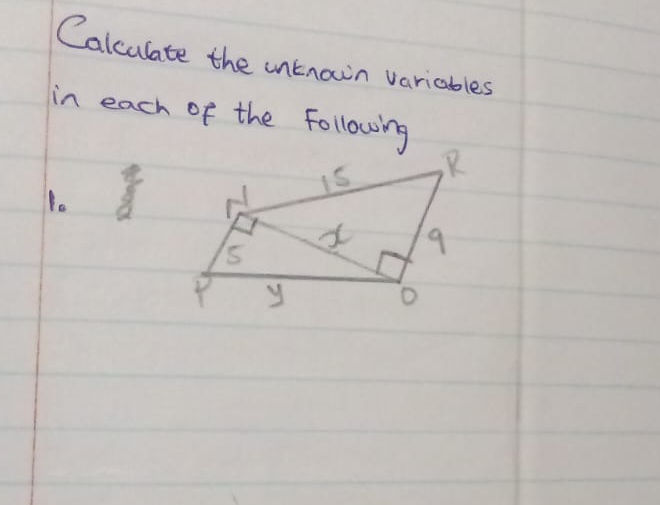 Calculate the unknown variables
in each of the Following
1.
15
R
N
x
9
5
P
y
O